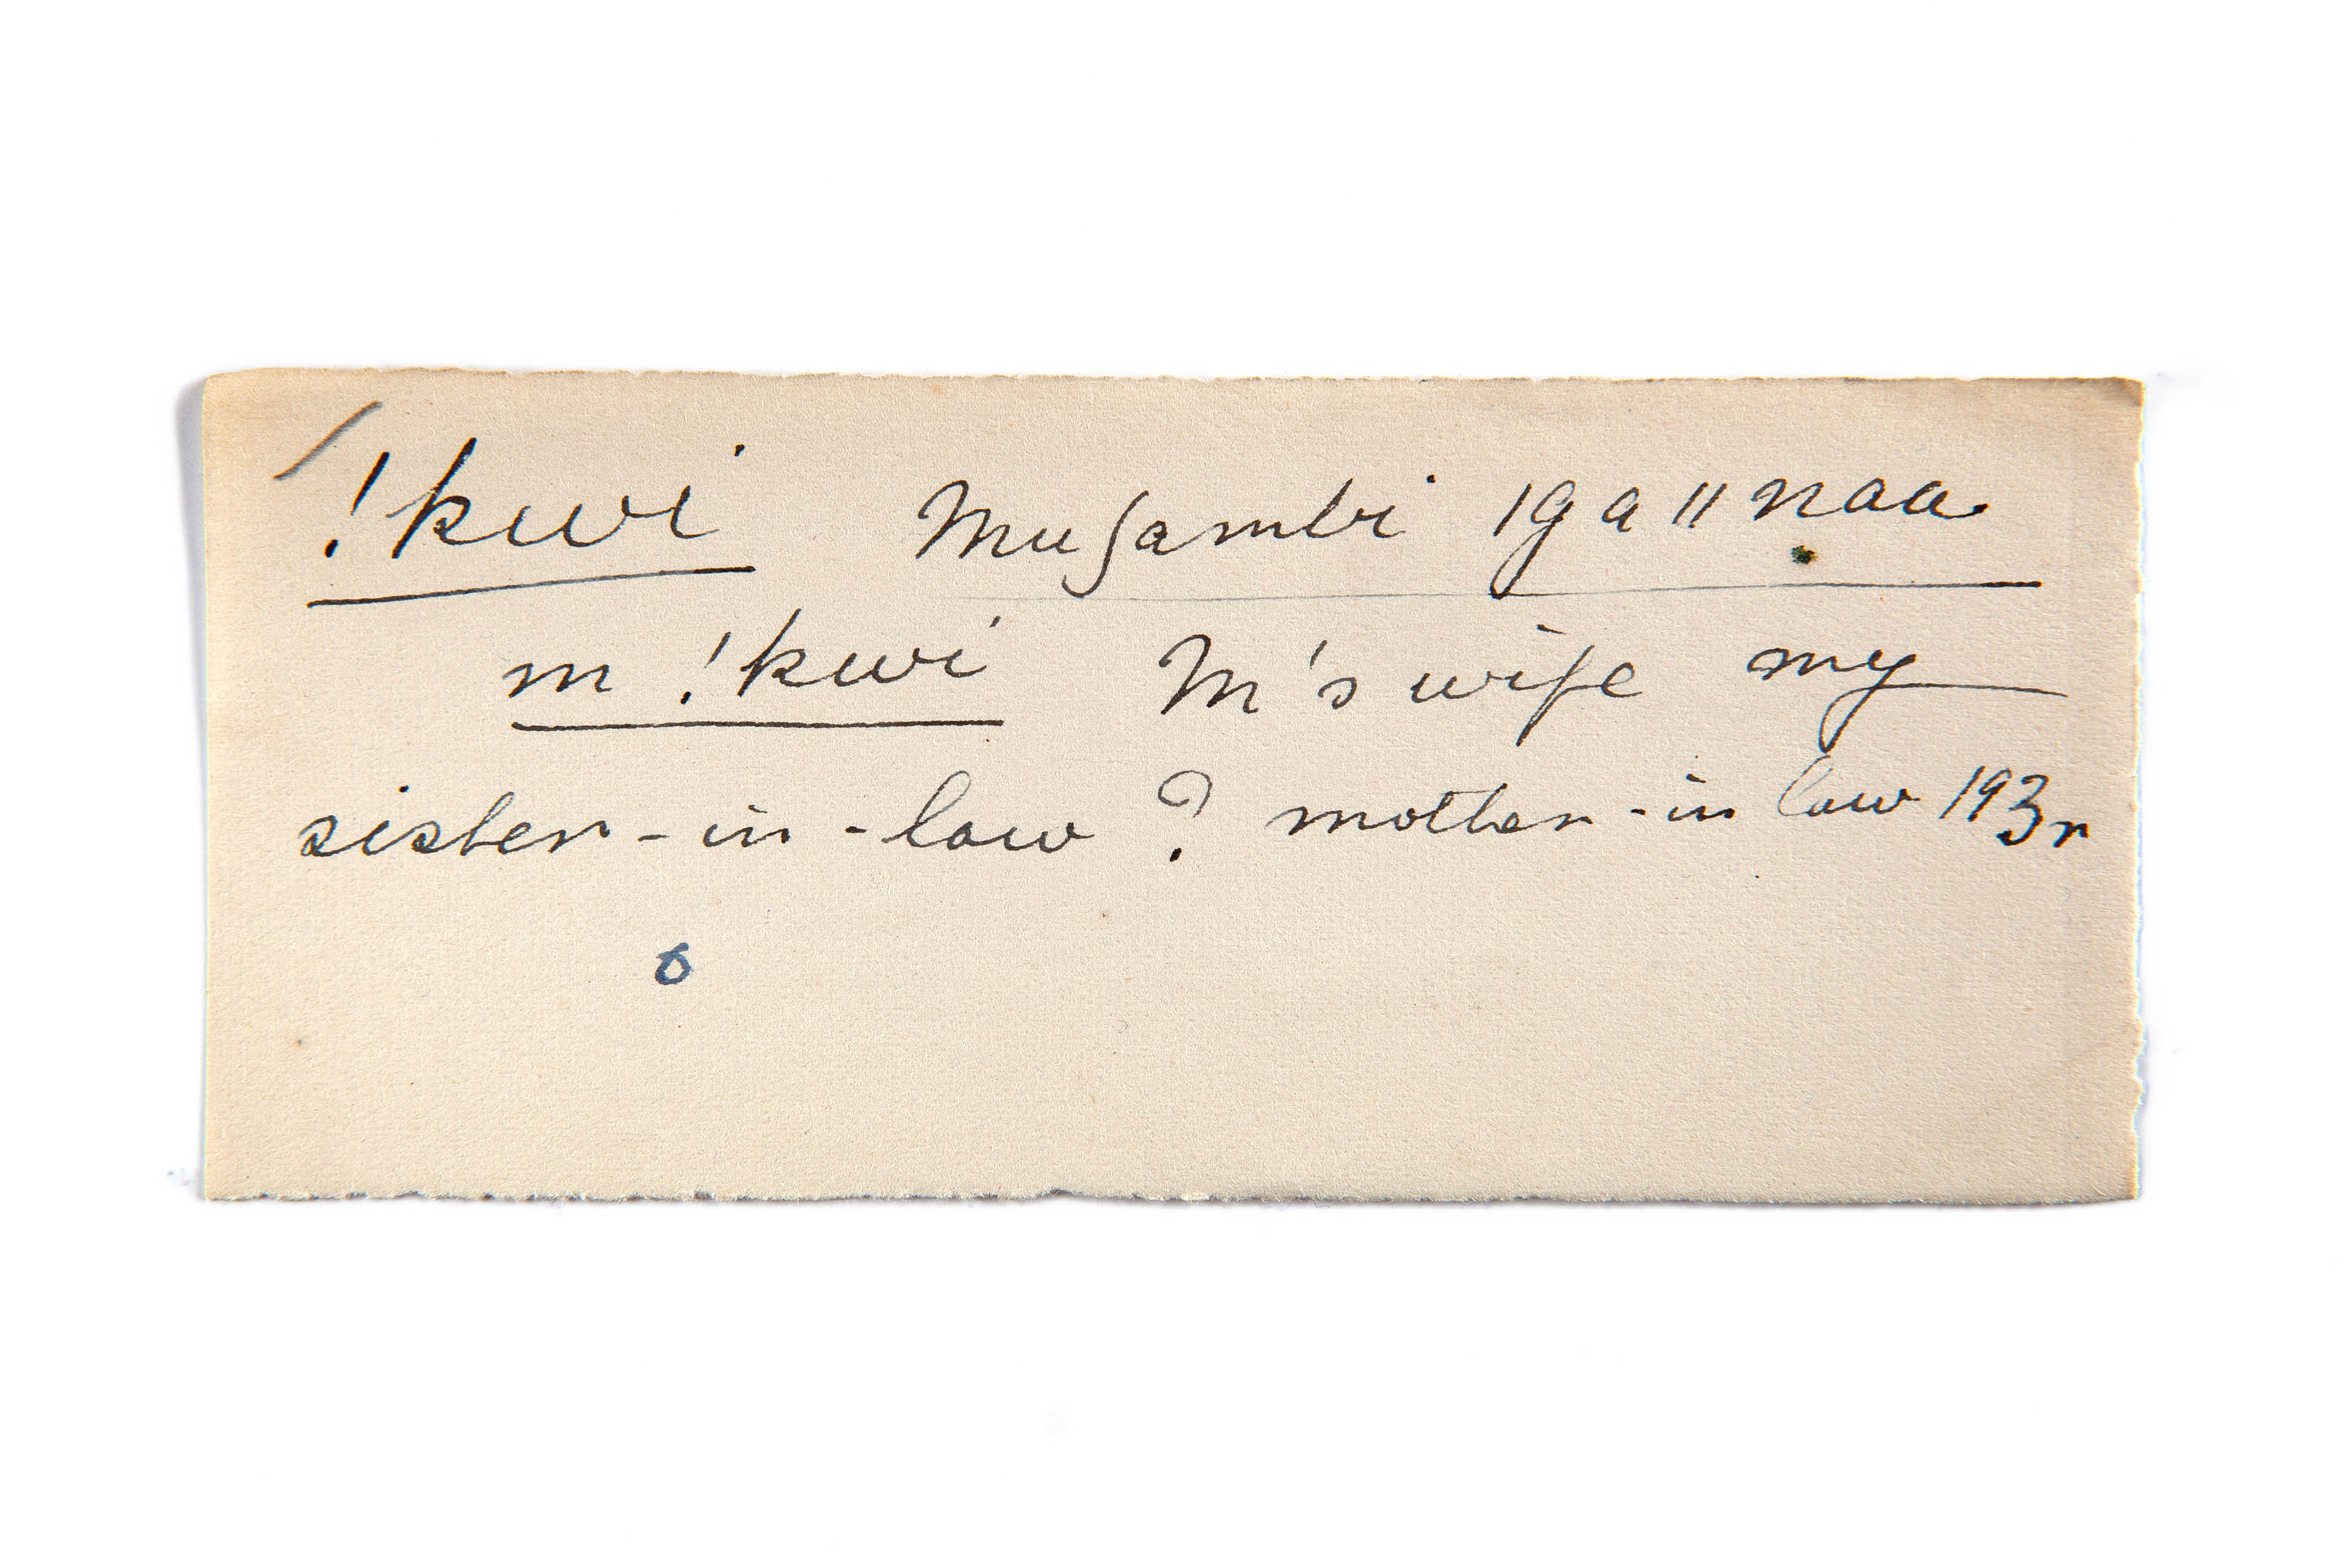 !kwi Musambi |ga ||naa
m !kwi M's wife my
sister-in-law ? mother-in law 193r
6